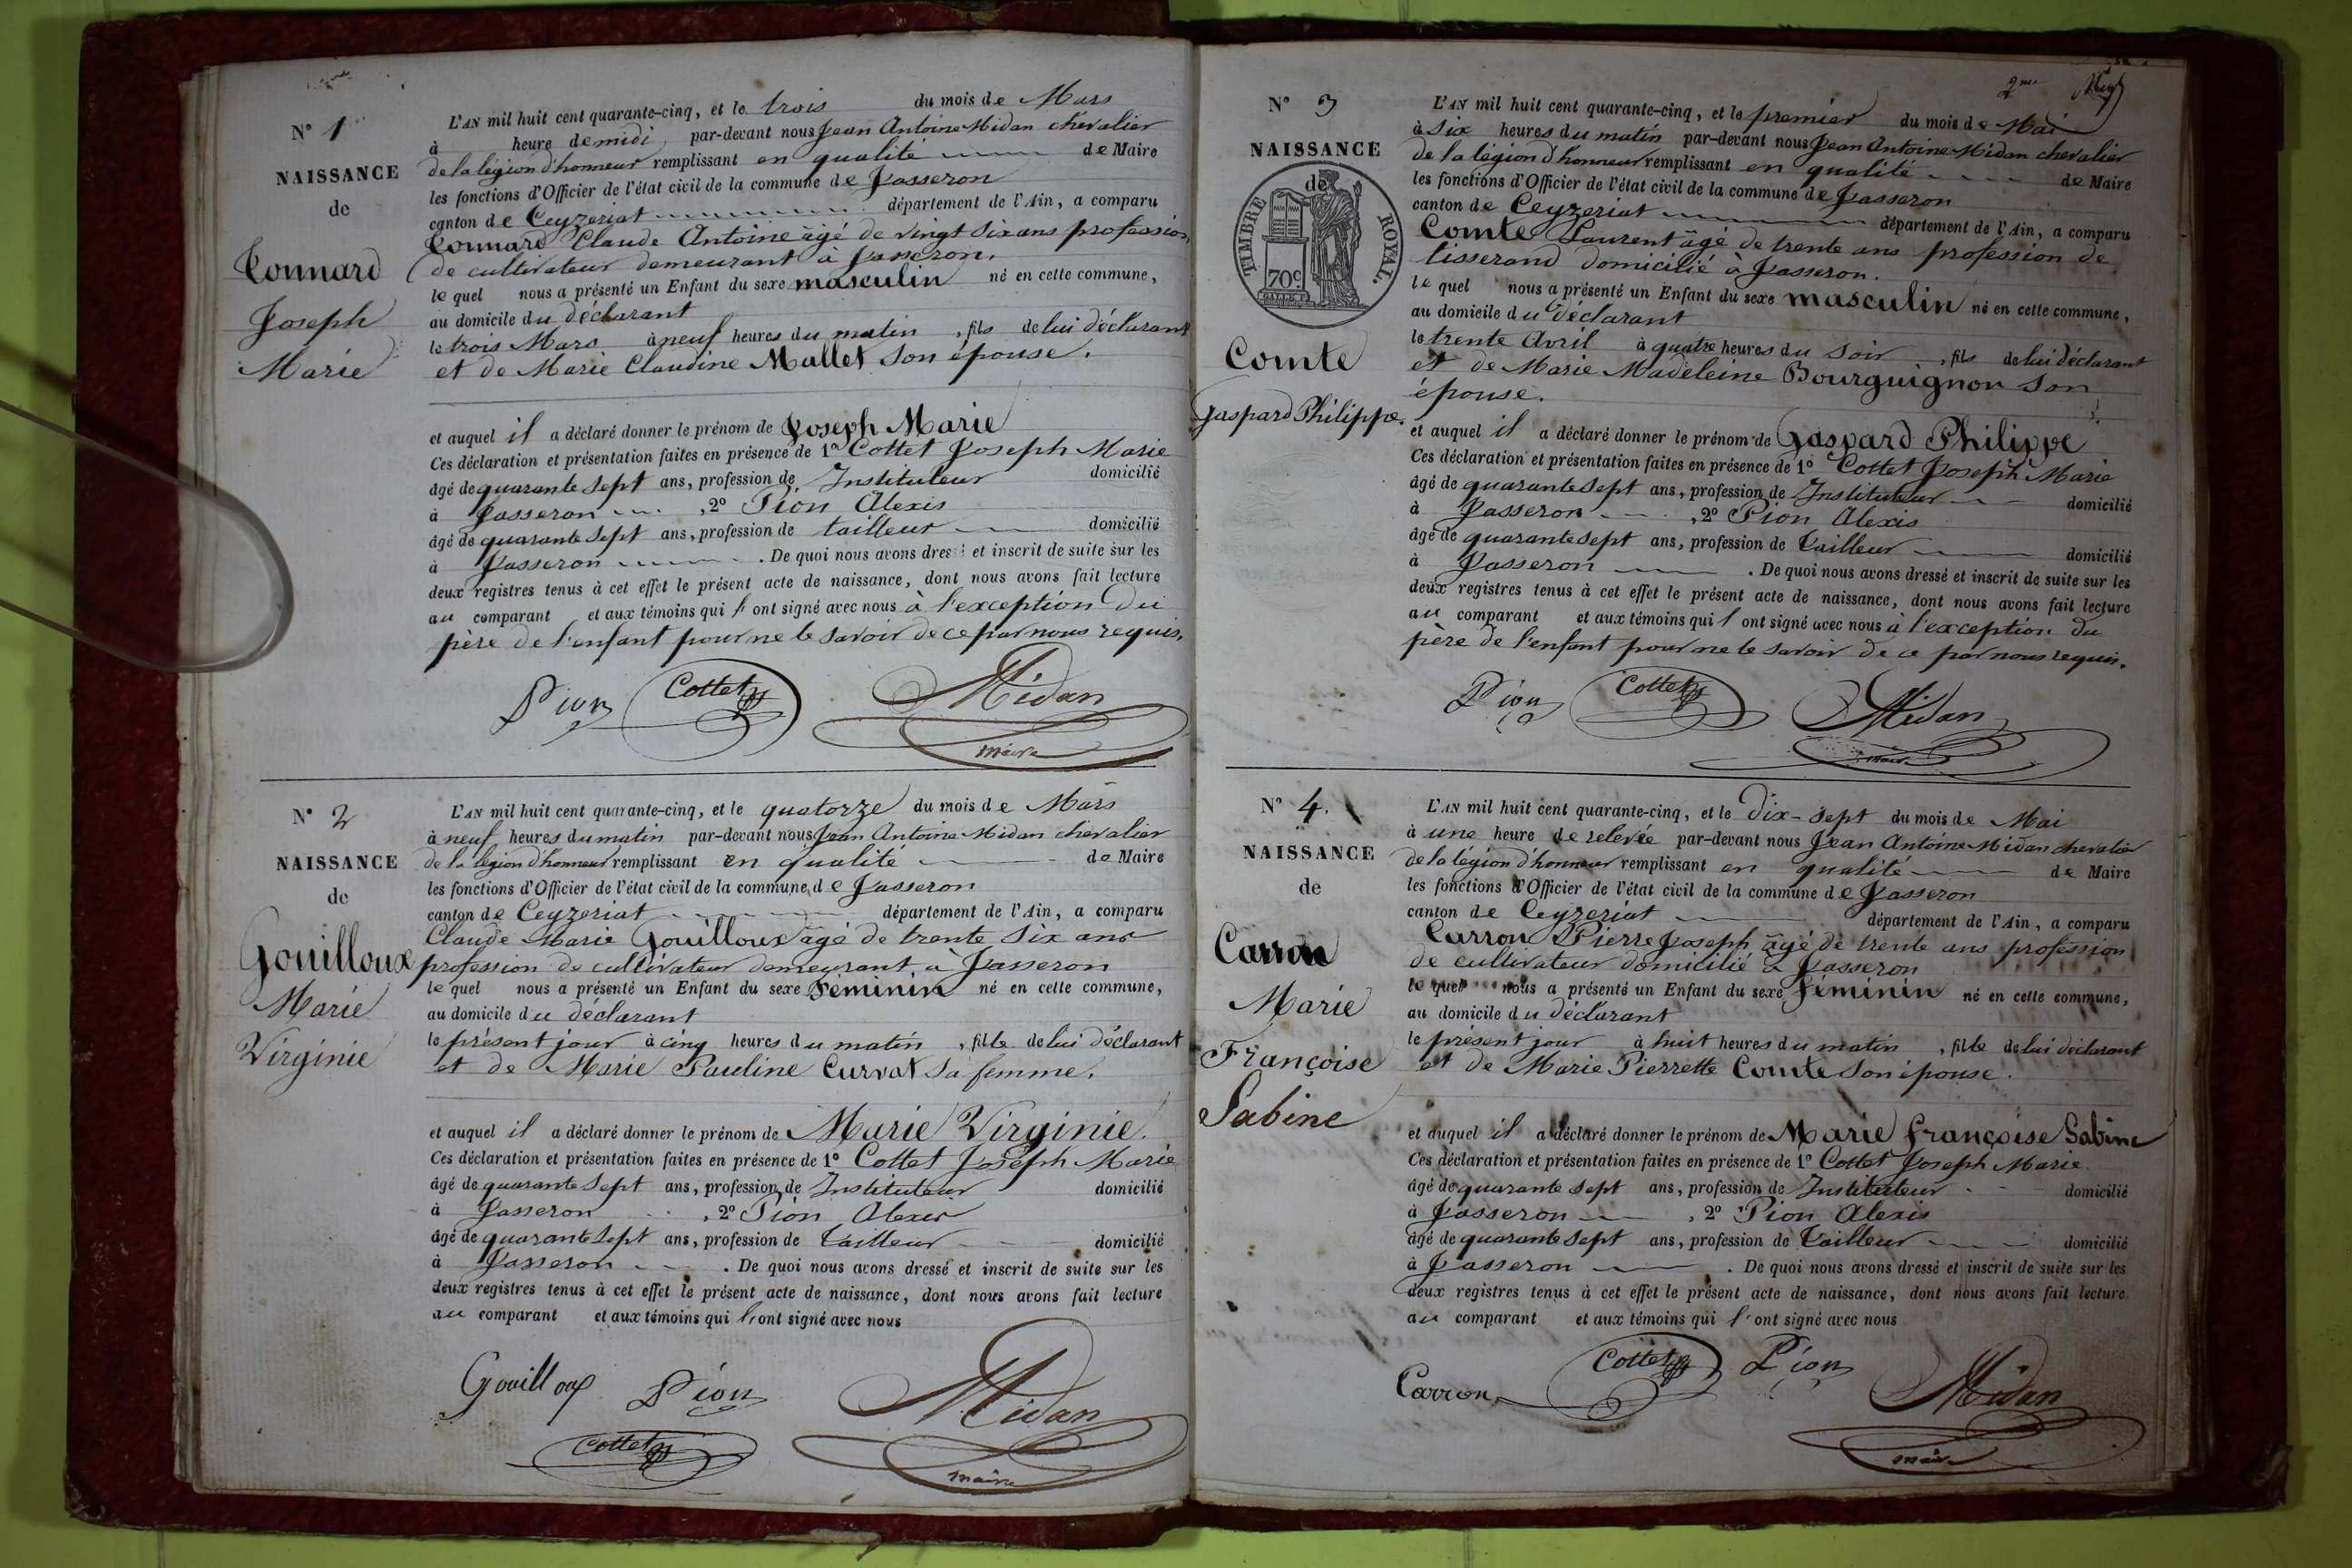 N° 1
NAISSANCE
de
Tonnard
Joseph
Marie
L'AN mil huit cent quarante-cinq, et le trois du mois de Mars
à heure de midi par-devant nous Jean Antoine Midan chevalier
de la légion d'honneur remplissant en qualité de Maire
les fonctions d'Officier de l'état civil de la commune de Jasseron
canton de Ceyzeriat département de l'Ain, a comparu
Tonnard Claude Antoine âgé de vingt six ans profession
de cultivateur demeurant à Jasseron.
lequel nous a présenté un Enfant du sexe masculin né en cette commune,
au domicile du déclarant
le trois Mars à neuf heures du matin, fils de lui déclarant
et de Marie Claudine Mallet son épouse.
et auquel il a déclaré donner le prénom de Joseph Marie
Ces déclaration et présentation faites en présence de 1° Cottet Joseph Marie
âgé de quarante sept ans, profession de Instituteur domicilié
à Jasseron, 2° Pion Alexis
âgé de quarante sept ans, profession de tailleur domicilié
à Jasseron. De quoi nous avons dressé et inscrit de suite sur les
deux registres tenus à cet effet le présent acte de naissance, dont nous avons fait lecture
au comparant et aux témoins qui l'ont signé avec nous à l'exception du
père de l'enfant pour ne le savoir de ce par nous requis.
Pion Cottet Midan
maire
N° 2
NAISSANCE
de
Gouilloux
Marie
Virginie
L'AN mil huit cent quarante-cinq, et le quatorze du mois de Mars
à neuf heures du matin par-devant nous Jean Antoine Midan chevalier
de la légion d'honneur remplissant en qualité de Maire
les fonctions d'Officier de l'état civil de la commune de Jasseron
canton de Ceyzeriat département de l'Ain, a comparu
Claude Marie Gouilloux âgé de trente six ans
profession de cultivateur demeurant à Jasseron
lequel nous a présenté un Enfant du sexe Féminin né en cette commune,
au domicile du déclarant
le présent jour à cinq heures du matin, fille de lui déclarant
et de Marie Pauline Curvat sa femme.
et auquel il a déclaré donner le prénom de Marie Virginie.
Ces déclaration et présentation faites en présence de 1° Cottet Joseph Marie
âgé de quarante sept ans, profession de Instituteur domicilié
à Jasseron, 2° Pion Alexis
âgé de quarante sept ans, profession de tailleur domicilié
à Jasseron. De quoi nous avons dressé et inscrit de suite sur les
deux registres tenus à cet effet le présent acte de naissance, dont nous avons fait lecture
au comparant et aux témoins qui l'ont signé avec nous
Gouilloux Pion Midan
Cottet maire
2me
N° 3
NAISSANCE
de
TIMBRE ROYAL.
70c.
Comte
Gaspard Philippe.
L'AN mil huit cent quarante-cinq, et le premier du mois de Mai
à six heures du matin par-devant nous Jean Antoine Midan chevalier
de la légion d'honneur remplissant en qualité de Maire
les fonctions d'Officier de l'état civil de la commune de Jasseron
canton de Ceyzeriat département de l'Ain, a comparu
Comte Laurent âgé de trente ans profession de
tisserand domicilié à Jasseron.
lequel nous a présenté un Enfant du sexe masculin né en cette commune,
au domicile du déclarant
le trente Avril à quatre heures du soir, fils de lui déclarant
et de Marie Madeleine Bourguignon son
épouse.
et auquel il a déclaré donner le prénom de Gaspard Philippe
Ces déclaration et présentation faites en présence de 1° Cottet Joseph Marie
âgé de quarante sept ans, profession de Instituteur domicilié
à Jasseron, 2° Pion Alexis
âgé de quarante sept ans, profession de tailleur domicilié
à Jasseron. De quoi nous avons dressé et inscrit de suite sur les
deux registres tenus à cet effet le présent acte de naissance, dont nous avons fait lecture
au comparant et aux témoins qui l'ont signé avec nous à l'exception du
père de l'enfant pour ne le savoir de ce par nous requis.
Pion Cottet Midan
maire
N° 4.
NAISSANCE
de
Carron
Marie
Françoise
Sabine
L'AN mil huit cent quarante-cinq, et le Dix-sept du mois de Mai
à une heure de relevée par-devant nous Jean Antoine Midan chevalier
de la légion d'honneur remplissant en qualité de Maire
les fonctions d'Officier de l'état civil de la commune de Jasseron
canton de Ceyzeriat département de l'Ain, a comparu
Carron Pierre Joseph âgé de trente ans profession
de cultivateur domicilié à Jasseron
lequel nous a présenté un Enfant du sexe féminin né en cette commune,
au domicile du déclarant
le présent jour à huit heures du matin, fille de lui déclarant
et de Marie Pierrette Comte son épouse.
et auquel il a déclaré donner le prénom de Marie Françoise Sabine
Ces déclaration et présentation faites en présence de 1° Cottet Joseph Marie.
âgé de quarante sept ans, profession de Instituteur domicilié
à Jasseron, 2° Pion Alexis
âgé de quarante sept ans, profession de tailleur domicilié
à Jasseron. De quoi nous avons dressé et inscrit de suite sur les
deux registres tenus à cet effet le présent acte de naissance, dont nous avons fait lecture
au comparant et aux témoins qui l'ont signé avec nous
Carron Cottet Pion Midan
maire